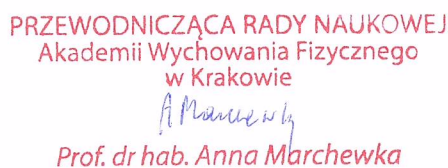 PRZEWODNICZĄCA RADY NAUKOWEJ
Akademii Wychowania Fizycznego
w Krakowie
A Marchewka
Prof. dr hab. Anna Marchewka